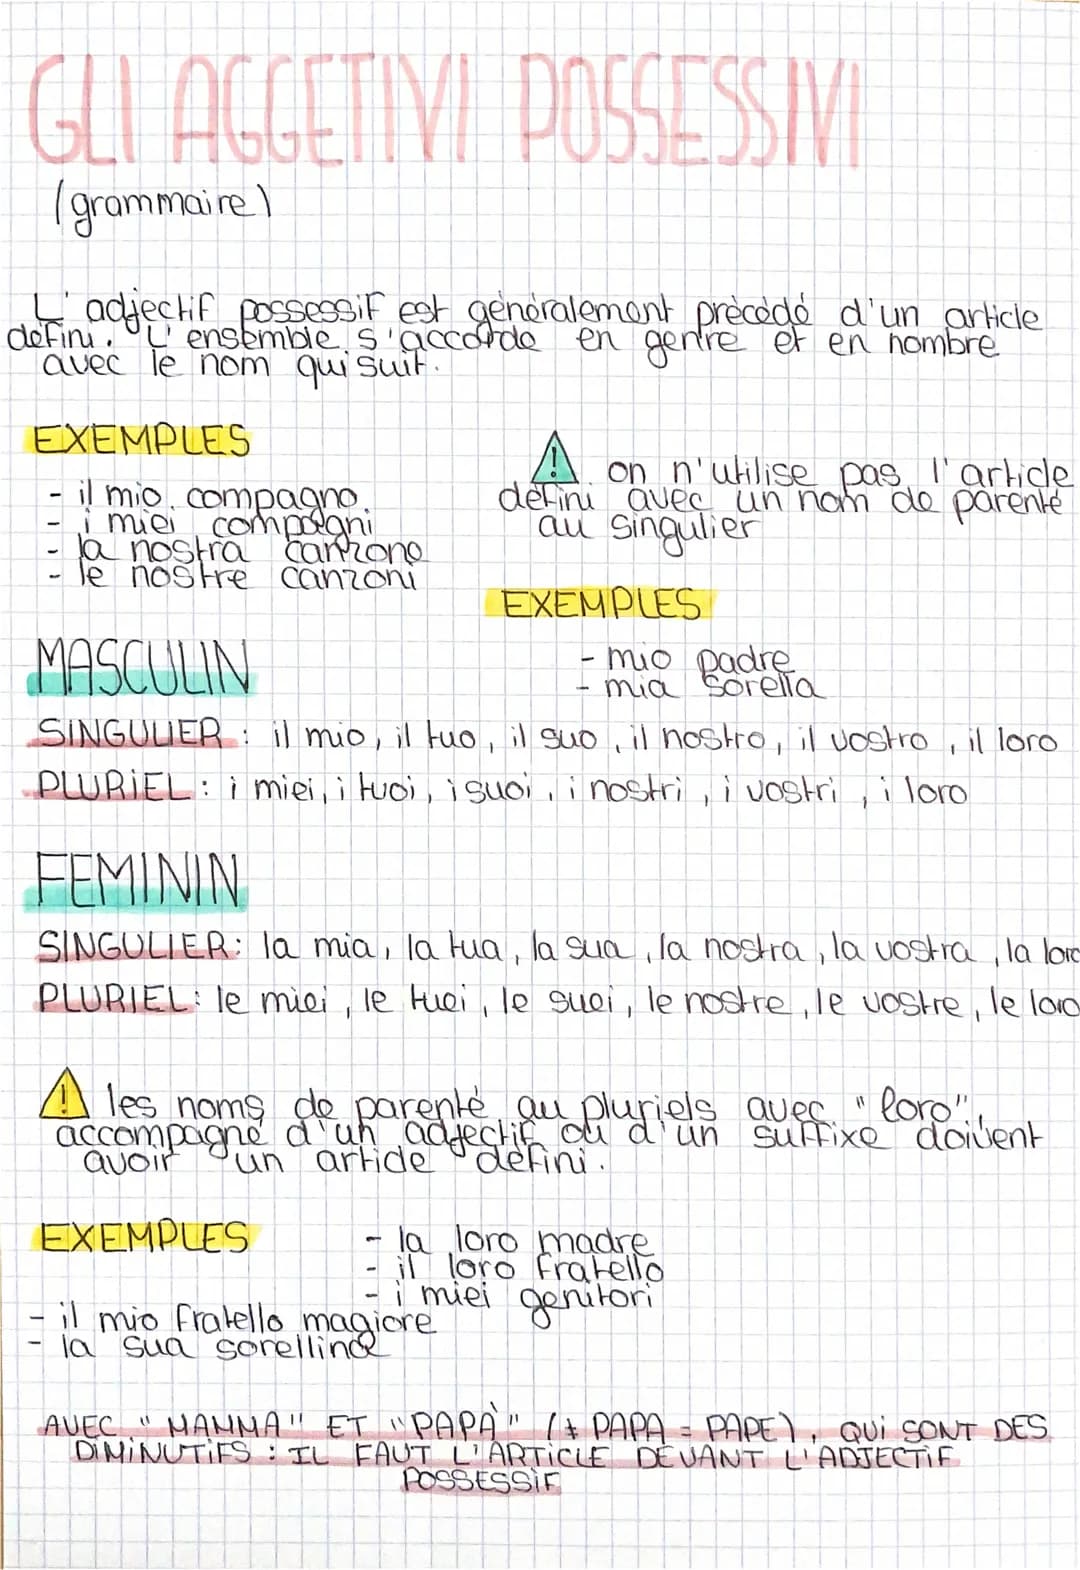 GLI AGGETIVI POSSESSIVI
(grammaire)
L'adjectif possessif est généralement précédé d'un article
défini. L'ensemble s'accorde en genre et en nombre
avec le nom qui suit.
EXEMPLES
- il mio compagno
- i miei compagni
- la nostra canzone
- le nostre canzoni
⚠ on n'utilise pas l'article
défini avec un nom de parenté
au singulier
EXEMPLES
- mio padre
- mia sorella
MASCULIN
SINGULIER : il mio, il tuo, il suo, il nostro, il vostro, il loro
PLURIEL : i miei, i tuoi, i suoi, i nostri, i vostri, i loro
FEMININ
SINGULIER : la mia, la tua, la sua, la nostra, la vostra, la loro
PLURIEL : le miei, le tuei, le suei, le nostre, le vostre, le loro
⚠ les noms de parenté au pluriels avec "loro",
accompagné d'un adjectif ou d'un suffixe doivent
avoir un article défini.
EXEMPLES
- la loro madre
- il loro fratello
- i miei genitori
- il mio fratello magiore
- la sua sorellina
AVEC "MAMMA" ET "PAPÀ" (≠ PAPA = PAPE), QUI SONT DES
DIMINUTIFS : IL FAUT L'ARTICLE DEVANT L'ADJECTIF
POSSESSIF